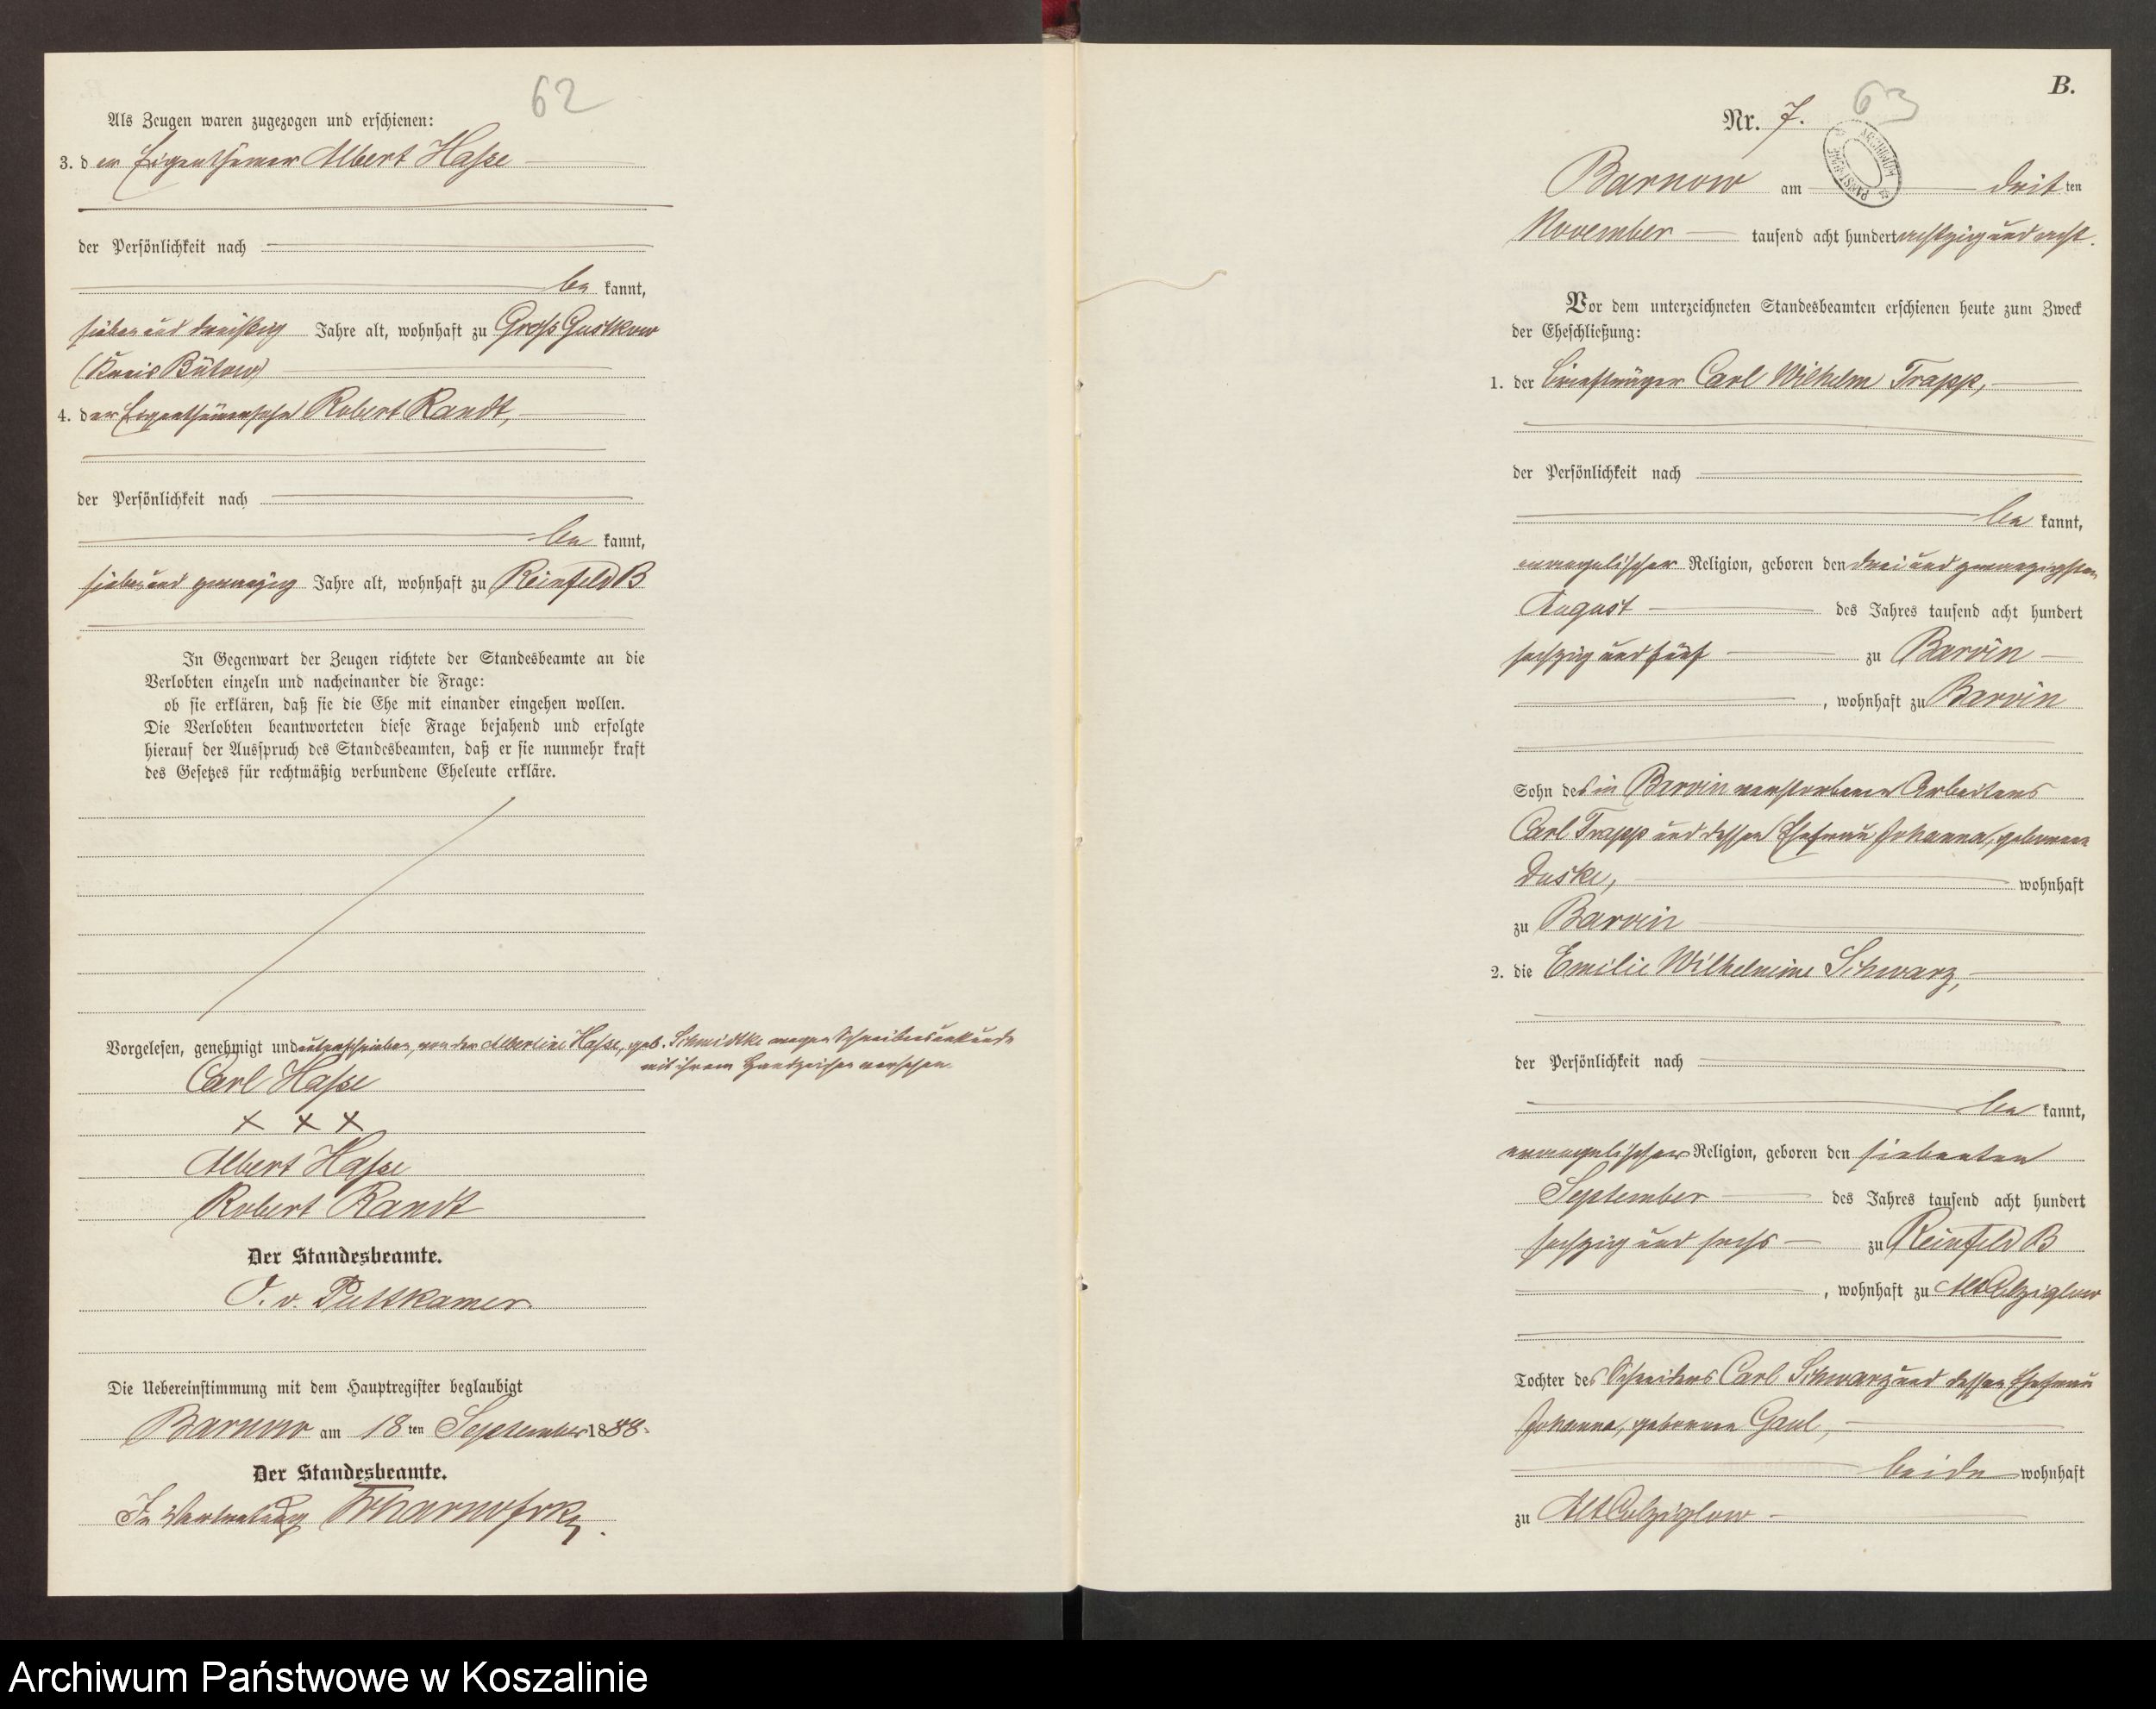 62
Als Zeugen waren zugezogen und erschienen:
3. der Eigenthümer Albert Haße
der Persönlichkeit nach
be kannt,
sieben und dreißig Jahre alt, wohnhaft zu Groß Gustkow
(Kreis Bütow)
4. der Eigenthümersohn Robert Randt,
der Persönlichkeit nach
be kannt,
sieben und zwanzig Jahre alt, wohnhaft zu Reinfeld B
In Gegenwart der Zeugen richtete der Standesbeamte an die
Verlobten einzeln und nacheinander die Frage:
ob sie erklären, daß sie die Ehe mit einander eingehen wollen.
Die Verlobten beantworteten diese Frage bejahend und erfolgte
hierauf der Ausspruch des Standesbeamten, daß er sie nunmehr kraft
des Gesetzes für rechtmäßig verbundene Eheleute erkläre.
Vorgelesen, genehmigt und unterschrieben, von der Albertine Haße, geb. Schmidtke wegen Schreibensunkunde
mit ihrem Handzeichen versehen.
Carl Haße
+ + +
Albert Haße
Robert Randt
Der Standesbeamte.
v. Puttkamer.
Die Uebereinstimmung mit dem Hauptregister beglaubigt
Barnow am 18 ten September 1888.
Der Standesbeamte.
In Vertretung
B.
63
Nr. 7.
ARCHIWUM PAŃSTWOWE
Barnow am dritten
November tausend acht hundert achtzig und acht.
Vor dem unterzeichneten Standesbeamten erschienen heute zum Zweck
der Eheschließung:
1. der Briefträger Carl Wilhelm Trapp,
der Persönlichkeit nach
be kannt,
evangelischer Religion, geboren den drei und zwanzigsten
August des Jahres tausend acht hundert
sechzig und fünf zu Barvin
, wohnhaft zu Barvin
Sohn des in Barvin verstorbenen Arbeiters
Carl Trapp und dessen Ehefrau Johanna, geborene
Duske, wohnhaft
zu Barvin
2. die Emilie Wilhelmine Schwarz,
der Persönlichkeit nach
be kannt,
evangelischer Religion, geboren den siebenten
September des Jahres tausend acht hundert
sechzig und sechs zu Reinfeld B
, wohnhaft zu Alt Colziglow
Tochter des Schneiders Carl Schwarz und dessen Ehefrau
Johanna, geborenen Gaul,
beide wohnhaft
zu Alt Colziglow
Archiwum Państwowe w Koszalinie